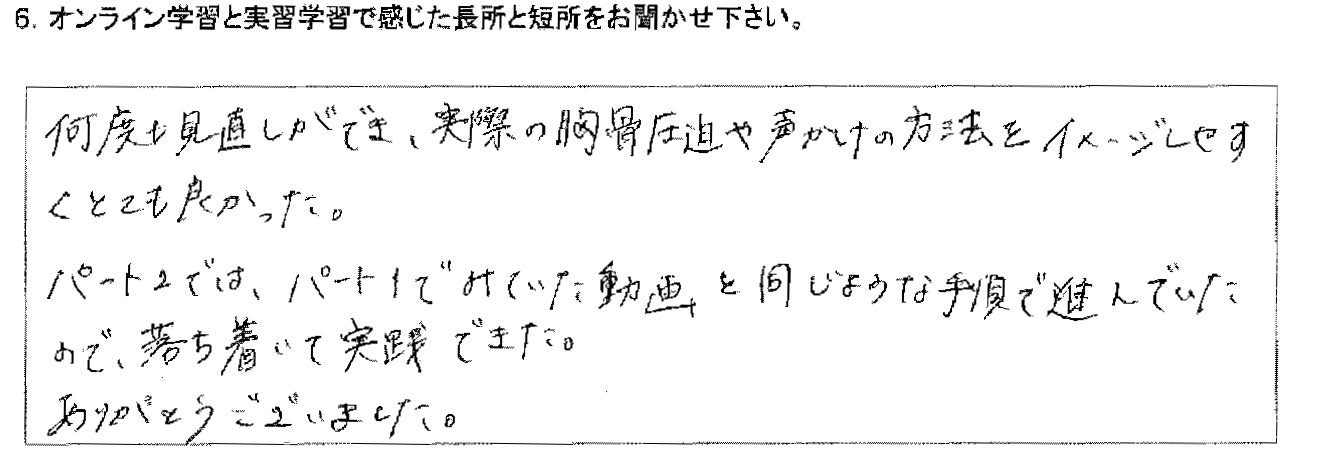 6. オンライン学習と実習学習で感じた長所と短所をお聞かせ下さい。
何度も見直しができ、実際の胸骨圧迫や声かけの方法をイメージしやす
くとても良かった。
パート2では、パート1でみていた動画と同じような手順で進んでいた
ので、落ち着いて実践できた。
ありがとうございました。